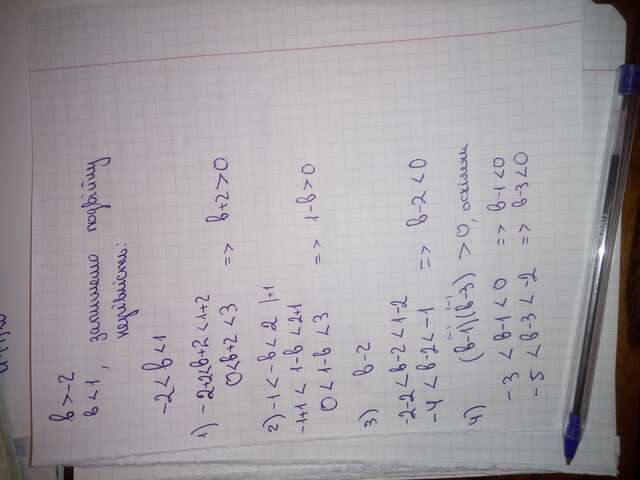 в > -2
в < 1, запишемо подвійну
нерівність:
-2 < в < 1
1) -2+2 < в+2 < 1+2
0 < в+2 < 3 => в+2 > 0
2) -1 < -в < 2 |+1
-1+1 < 1-в < 2+1
0 < 1-в < 3 => 1-в > 0
3) в-2
-2-2 < в-2 < 1-2
-4 < в-2 < -1 => в-2 < 0
4) (в-1)(в-3) > 0, оскільки
-3 < в-1 < 0 => в-1 < 0
-5 < в-3 < -2 => в-3 < 0